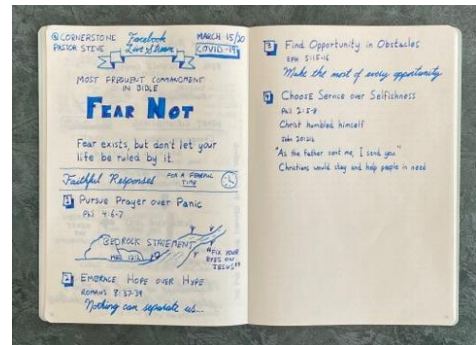 @CORNERSTONE
PASTOR STEVE
Facebook
Live Stream
MARCH 15/20
COVID-19
MOST FREQUENT COMMANDMENT
IN BIBLE
FEAR NOT
Fear exists, but don't let your
life be ruled by it.
Faithful Responses FOR A FEARFUL
TIME
1 Pursue Prayer over Panic
Phil 4:6-7
BEDROCK STATEMENT
"FIX YOUR
EYES ON
JESUS"
2 EMBRACE HOPE OVER HYPE
ROMANS 8:37-39
Nothing can separate us...
3 Find Opportunity in Obstacles
EPH 5:15-16
Make the most of every opportunity
4 Choose Service over Selfishness
Phil 2:5-8
Christ humbled himself
John 20:21b
"As the Father sent me, I send you"
Christians would stay and help people in need